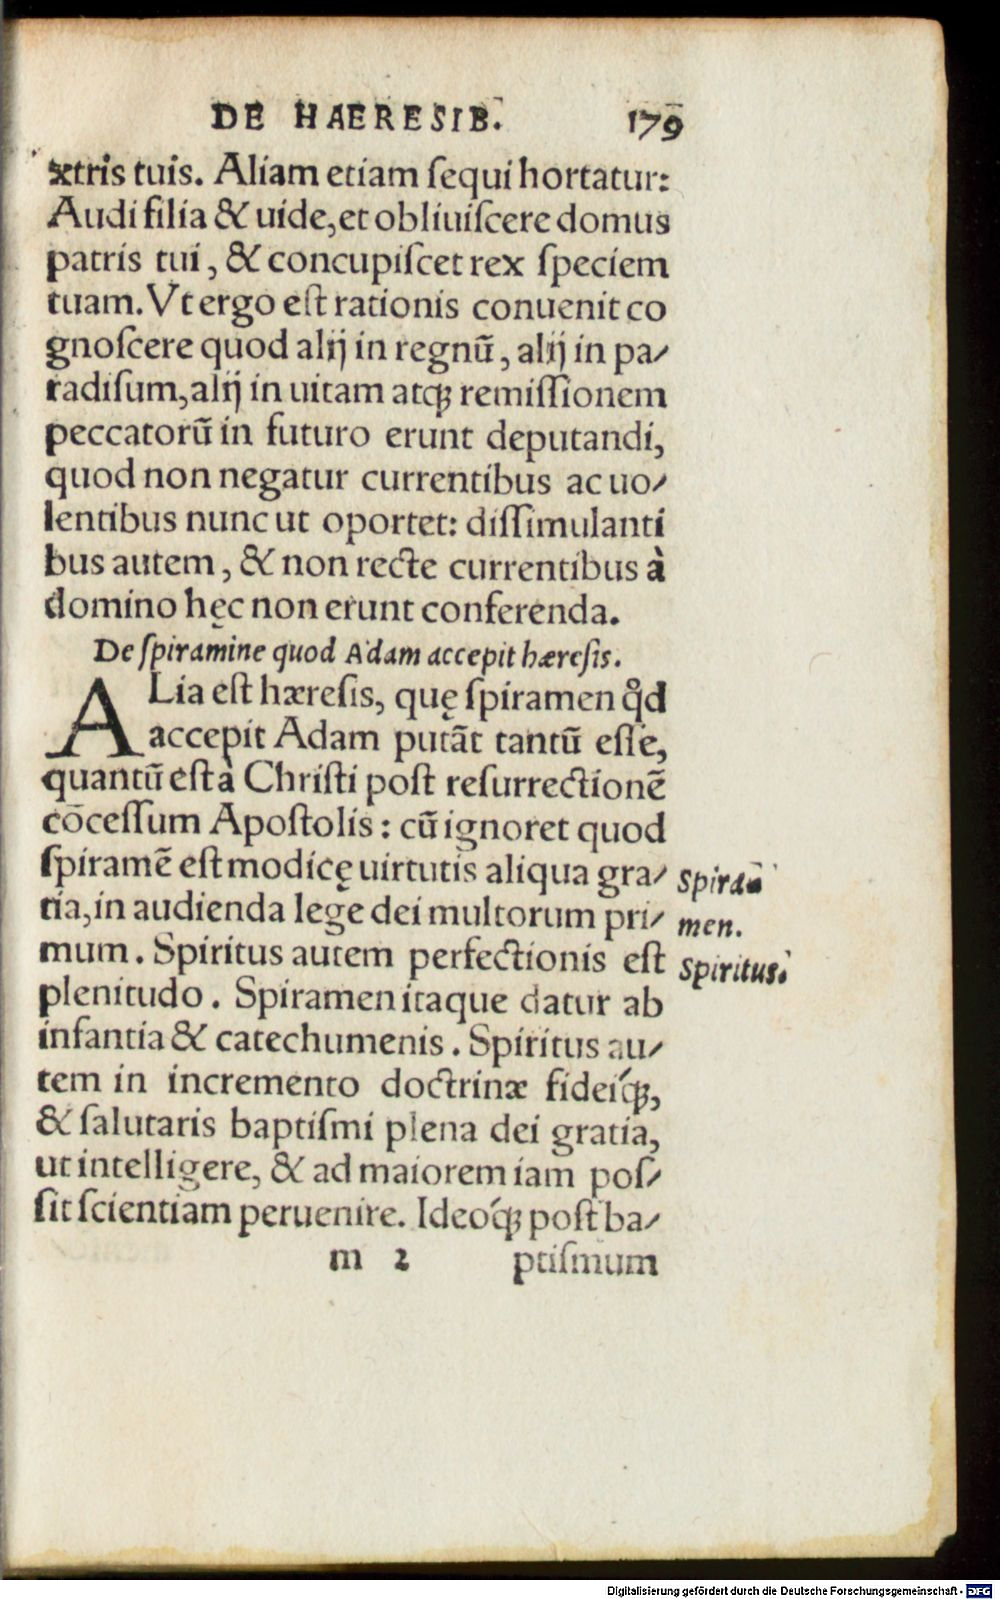 DE HAERESIB. 179
xtris tuis. Aliam etiam ſequi hortatur:
Audi filia & uide, et obliuiſcere domus
patris tui, & concupiſcet rex ſpeciem
tuam. Vt ergo eſt rationis conuenit co
gnoſcere quod alij in regnū, alij in pa/
radiſum, alij in uitam atq́; remiſſionem
peccatorū in futuro erunt deputandi,
quod non negatur currentibus ac uo/
lentibus nunc ut oportet: diſſimulanti
bus autem, & non recte currentibus à
domino hęc non erunt conferenda.
De ſpiramine quod Adam accepit hæreſis.
ALia eſt hæreſis, quę ſpiramen qd̊
accepit Adam putāt tantū eſſe,
quantū eſt à Chriſti poſt reſurrectionē
cōceſſum Apoſtolis: cū ignoret quod
ſpiramē eſt modicę uirtutis aliqua gra/
tia, in audienda lege dei multorum pri/
mum. Spiritus autem perfectionis eſt
plenitudo. Spiramen itaque datur ab
infantia & catechumenis. Spiritus au/
tem in incremento doctrinæ fideiq́;,
& ſalutaris baptiſmi plena dei gratia,
ut intelligere, & ad maiorem iam poſ/
ſit ſcientiam peruenire. Ideoq́; poſt ba/
m 2 ptiſmum
Spira
men.
Spiritus.
Digitalisierung gefördert durch die Deutsche Forschungsgemeinschaft - DFG